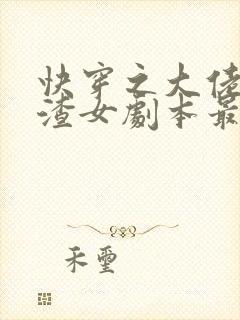 快穿之大佬
渣女剧本最
禾玺